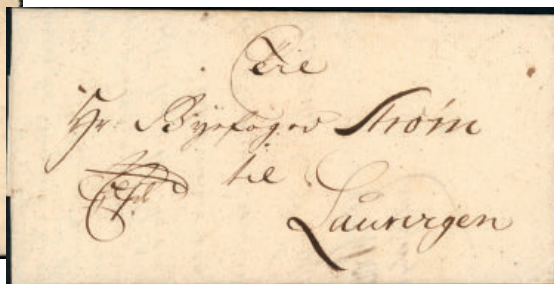 Til
Hr. Byefoged Strøm
til
Laurvigen